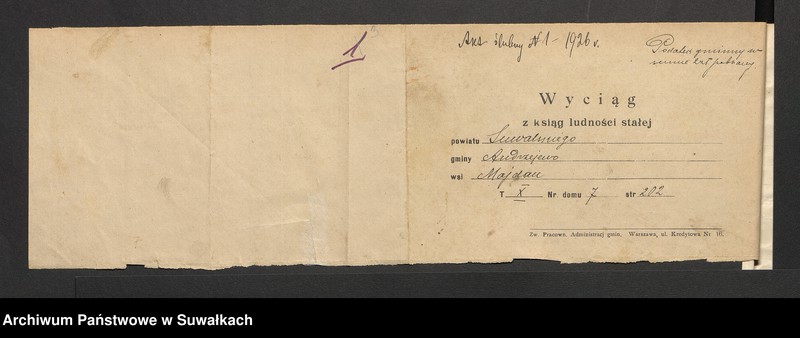 1
Akt ślubny № 1 - 1926 r.
Podatek gminny w
sumie zł pobrany
Wyciąg
z ksiąg ludności stałej
powiatu Suwalskiego
gminy Andrzejewo
wsi Majdan
T X Nr. domu 7 str 202
Zw. Pracown. Administracj gmin. Warszawa, ul. Kredytowa Nr 16.
Archiwum Państwowe w Suwałkach